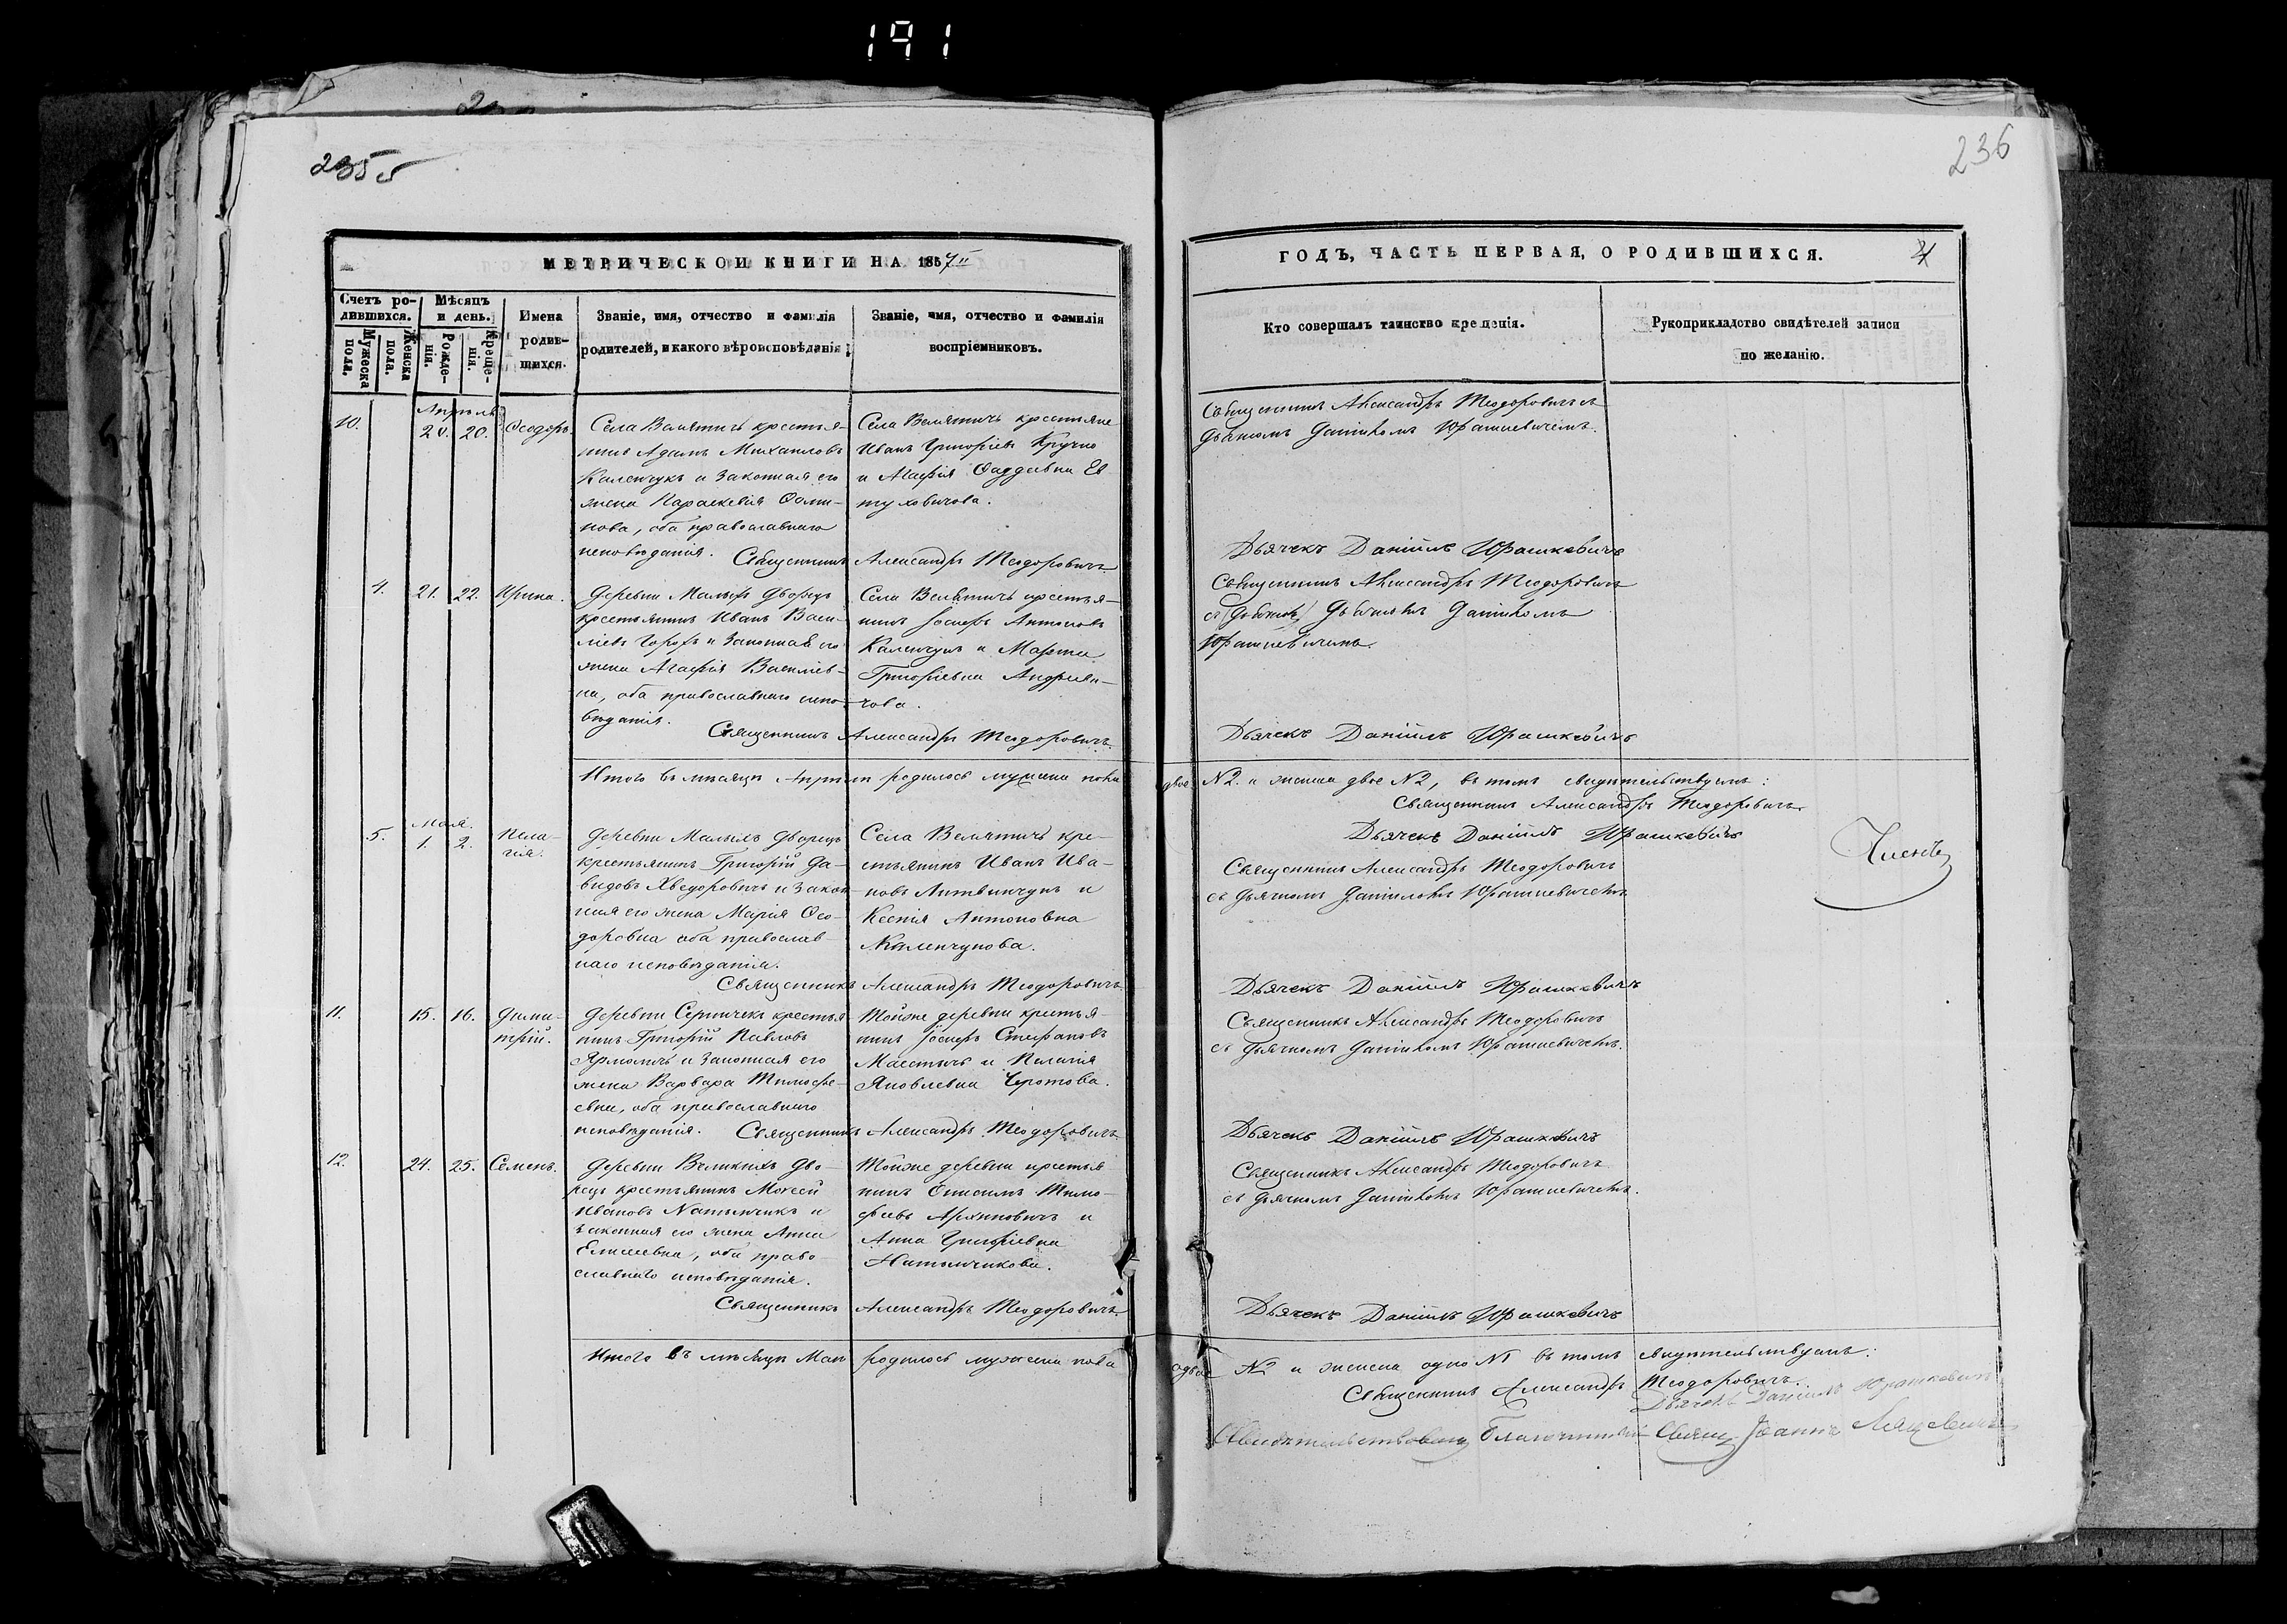 191
235
236
МЕТРИЧЕСКОЙ КНИГИ НА 1857й
ГОДЪ, ЧАСТЬ ПЕРВАЯ, О РОДИВШИХСЯ.
4
Счетъ ро-
дившихся.
Мужеска
пола.
Женска
пола.
Мѣсяцъ
и день.
Рожде-
нія.
Креще-
нія.
Имена
родив-
шихся.
Званіе, имя, отчество и фамилія
родителей, и какого вѣроисповѣданія
Званіе, имя, отчество и фамилія
воспріемниковъ.
Кто совершалъ таинство крещенія.
Рукоприкладство свидѣтелей записи
по желанію.
10.
Апрѣль
20. 20.
Ѳеодоръ.
Села Велятичъ крестья-
нинъ Адамъ Михаиловъ
Каленчукъ и законная его
жена Параскевія
нова, оба православнаго
исповѣданія.
Села Велятичъ крестьяне
Иванъ Григоріевъ Кручко
и Агафія Ѳаддеевна Ев-
туховичова.
Священникъ Александръ Теодоровичъ съ
дьячкомъ Даніиломъ Юрашкевичемъ.
Священникъ Александръ Теодоровичъ
Дьячекъ Даніилъ Юрашкевичъ
4. 21. 22. Ирина.
Деревни Малыхъ Дворецъ
крестьянинъ Иванъ Васи-
ліевъ и законная его
жена Агафія Василіев-
на, оба православнаго испо-
вѣданія.
Села Велятичъ крестья-
нинъ Іосифъ Антоновъ
Каленчукъ и Марта
Григоріевна Андреви-
чова.
Священникъ Александръ Теодоровичъ
съ Дьячкомъ Даніиломъ
Юрашкевичемъ.
Священникъ Александръ Теодоровичъ
Дьячекъ Даніилъ Юрашкевичъ
Итого въ мѣсяцѣ Апрѣлѣ родилось мужеска пола двое №2. и женска двое №2, въ томъ свидѣтельствуемъ:
Священникъ Александръ Теодоровичъ
Дьячекъ Даніилъ Юрашкевичъ
Мая.
5. 1. 2. Пела-
гія.
Деревни Малыхъ Дворецъ
крестьянинъ Григорій Да-
видовъ Хведоровичъ и закон-
ная его жена Марія Ѳео-
доровна оба православ-
наго исповѣданія.
Села Велятичъ кре-
стьянинъ Иванъ Ива-
новъ Литвинчукъ и
Ксенія Антоновна
Каленчукова.
Священникъ Александръ Теодоровичъ
съ дьячкомъ Даніиломъ Юрашкевичемъ
Священникъ Александръ Теодоровичъ
Дьячекъ Даніилъ Юрашкевичъ
11. 15. 16. Дими-
трій.
Деревни Серничекъ крестья-
нинъ Григорій Павловъ
Ярмоличъ и законная его
жена Варвара Тимоѳе-
евна, оба православнаго
исповѣданія.
Тойже деревни крестья-
нинъ Іосифъ Стефановъ
и Пелагія
Яковлевна
Священникъ Александръ Теодоровичъ
съ дьячкомъ Даніиломъ Юрашкевичемъ.
Священникъ Александръ Теодоровичъ
Дьячекъ Даніилъ Юрашкевичъ
12. 24. 25. Семенъ.
Деревни Великихъ Дво-
рецъ крестьянинъ Моѵсей
Ивановъ Натынчикъ и
законная его жена Анна
Елисеевна, оба право-
славнаго исповѣданія.
Тойже деревни крестья-
нинъ Онисимъ Тимо-
феевъ и
Анна Григоріевна
Натынчикова.
Священникъ Александръ Теодоровичъ
съ дьячкомъ Даніиломъ Юрашкевичемъ.
Священникъ Александръ Теодоровичъ
Дьячекъ Даніилъ Юрашкевичъ
Итого въ мѣсяцѣ Маѣ родилось мужеска пола двое №2 и женска одно №1 въ томъ свидѣтельствуемъ:
Священникъ Александръ Теодоровичъ.
Дьячекъ Даніилъ Юрашкевичъ
Свидѣтельствовалъ Благочинный Свящ. Іоаннъ